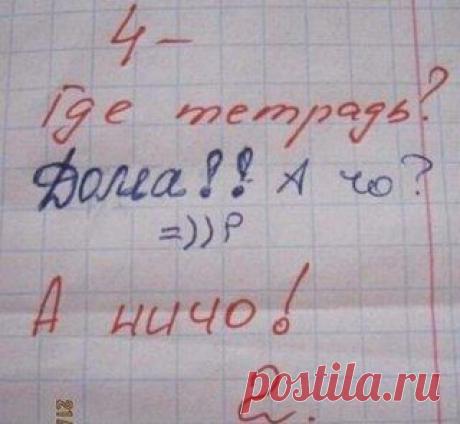 4-
Где тетрадь?
Дома!! А чо?
=))Р
А ничо!
2.
postila.ru